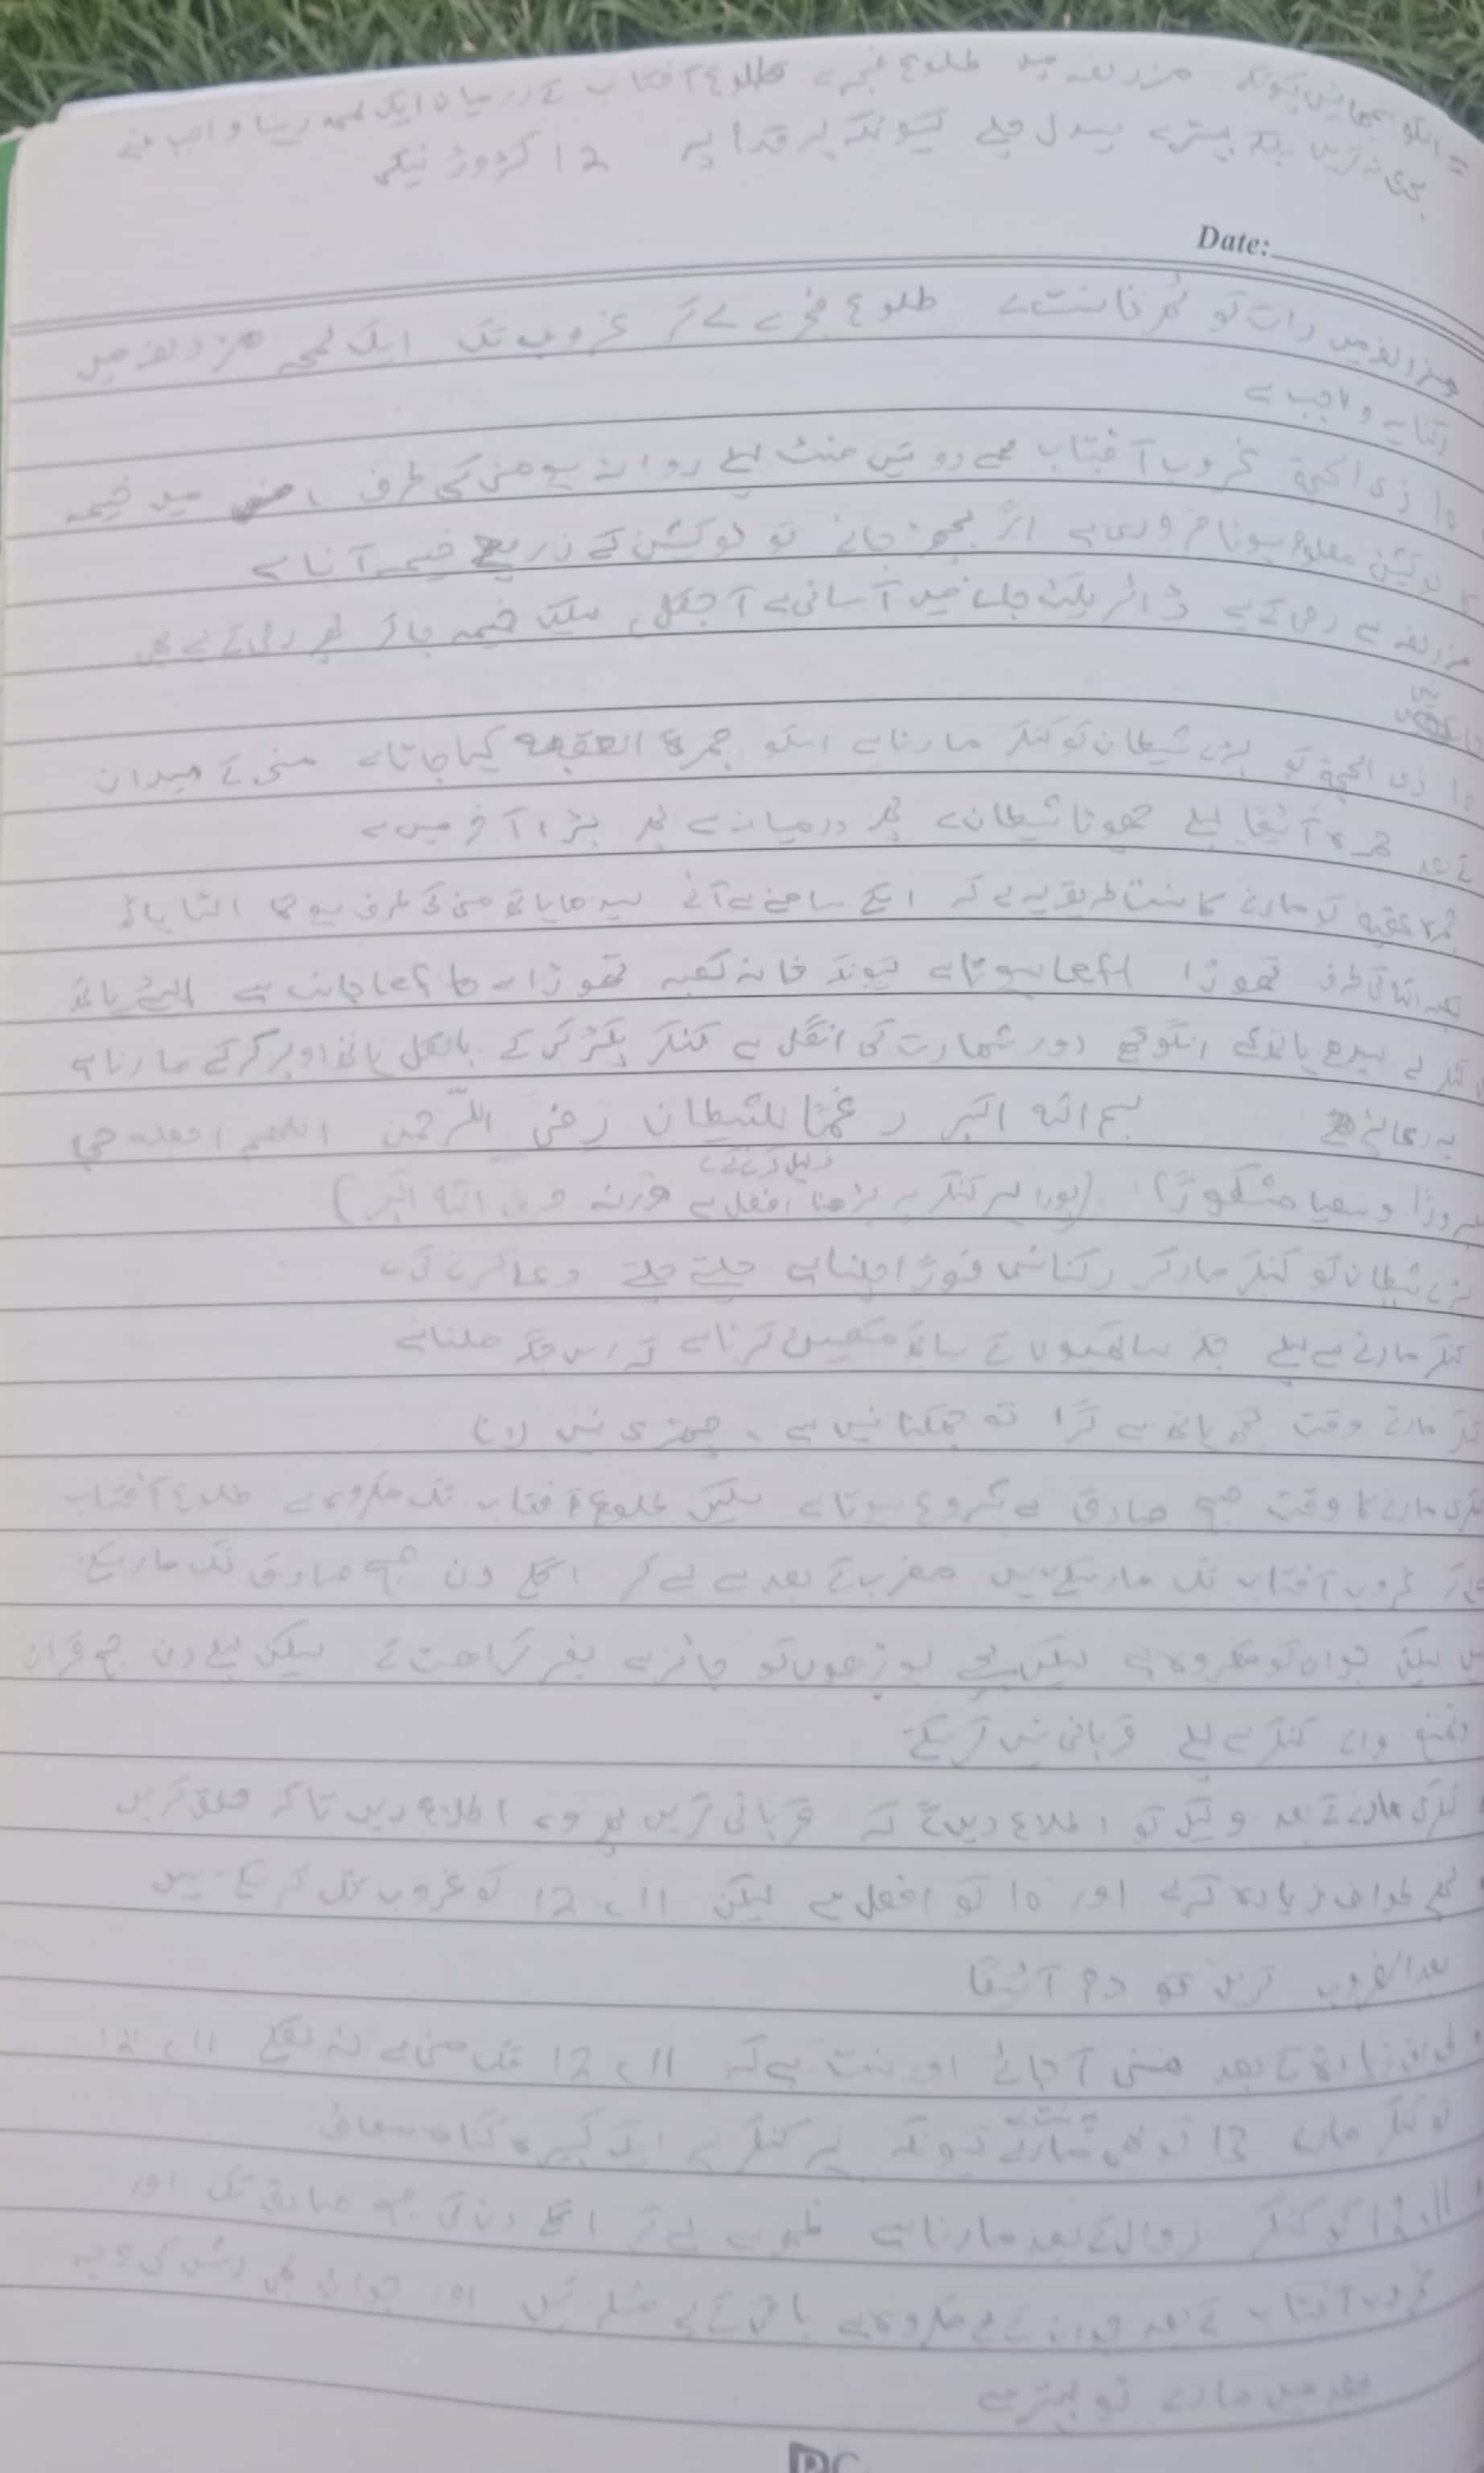 = انکو سمجھائیں کیونکہ مزدلفہ میں طلوع فجر سے طلوع آفتاب کے درمیان ایک لمحہ رہنا واجب ہے
بلکہ پیدل چلے کیونکہ ہر قدم پہ 12 کروڑ نیکی
Date:
مزدلفہ میں رات کو سنت ہے طلوع فجر سے لے کر غروب تک ایک لمحہ مزدلفہ میں
واجب ہے
10 ذی الحجۃ آفتاب سے دو تین منٹ پہلے روانہ ہو منی کی طرف ، منی میں خیمہ
معلوم ہونا ضروری ہے اگر بچھڑ جائے تو لوکیشن کے ذریعے خیمہ آنا ہے
مزدلفہ سے رمی کے لیے ڈائریکٹ جانے میں آسانی ہے آجکل، لیکن خیمہ جا کر پھر رمی کے لیے
10 ذی الحجۃ کو بڑے شیطان کو کنکر مارنا ہے اسکو جمرۃ العقبہ کہا جاتا ہے منی کے میدان
کے بعد جمرہ آئیگا پہلے چھوٹا شیطان ہے پھر درمیانہ ہے پھر بڑا، آخر میں ہے
جمرہ عقبہ کو مارنے کا سنت طریقہ یہ ہے کہ اسکے سامنے سے آئے سیدھا ہاتھ منی کی طرف ہو گا الٹا ہاتھ
کی طرف تھوڑا left ہوتا ہے کیونکہ خانہ کعبہ تھوڑا سا left جانب ہے الٹے ہاتھ
سیدھے ہاتھ کے انگوٹھے اور شہادت کی انگلی سے کنکر پکڑ کر کے بالکل ہاتھ اوپر کر کے مارنا ہے
یہ دعا پڑھے بسم اللہ اللہ اکبر رغمًا للشیطان رضی للرحمٰن اللھم اجعلہ حجی
ذلیل کرنے کے لیے
مبرورًا و سعیا مشکورًا (پورا ہر کنکر پہ پڑھنا افضل ہے ورنہ اللہ اکبر)
بڑے شیطان کو کنکر مار کر رکنا نہیں فورًا چلنا ہے چلتے چلتے دعا کرنی ہے
کنکر مارنے سے پہلے جگہ ساتھیوں کے ساتھ متعین کرنا ہے کہ اس جگہ ملنا ہے
کنکر مارتے وقت کچھ ہاتھ سے گرا تو جھکنا نہیں ہے ، چھتری نہیں لانا
کنکری مارنے کا وقت صبح صادق سے شروع ہوتا ہے لیکن طلوع آفتاب تک مکروہ ہے طلوع آفتاب
غروب آفتاب تک مار سکتے ہیں مغرب کے بعد سے لے کر اگلے دن صبح صادق تک مار سکتے
ہیں لیکن جوان کو مکروہ ہے لیکن بچے بوڑھوں کو جائز ہے بغیر کراھت کے لیکن پہلے دن حج قران
تمتع والے کنکر سے پہلے قربانی نہیں کر سکتے
کنکری مارنے کے بعد وکیل کو اطلاع دیں گے کہ قربانی کریں پھر وہ اطلاع دیں تاکہ حلق کریں
طواف زیادہ کرے اور 10 کو افضل ہے لیکن 11، 12 کو غروب تک کر سکتے ہیں
بعد الغروب کریں تو دم آئیگا
طواف زیارۃ کے بعد منی آ جائے اور سنت ہے کہ 11، 12 تک منی سے نہ نکلے 11، 12
یہ سنت ہے
کو کنکر مارے 13 کو بھی مارے کیونکہ ہر کنکر سے ایک کبیرہ گناہ معاف
11، 12 کو کنکر زوال کے بعد مارنا ہے ظہر سے لے کر اگلے دن کی صبح صادق تک اور
غروب آفتاب کے بعد جوان کے لیے مکروہ ہے باقی کے لیے مسئلہ نہیں اور جوان بھی رش کی وجہ
بعد میں مارے تو بہتر ہے